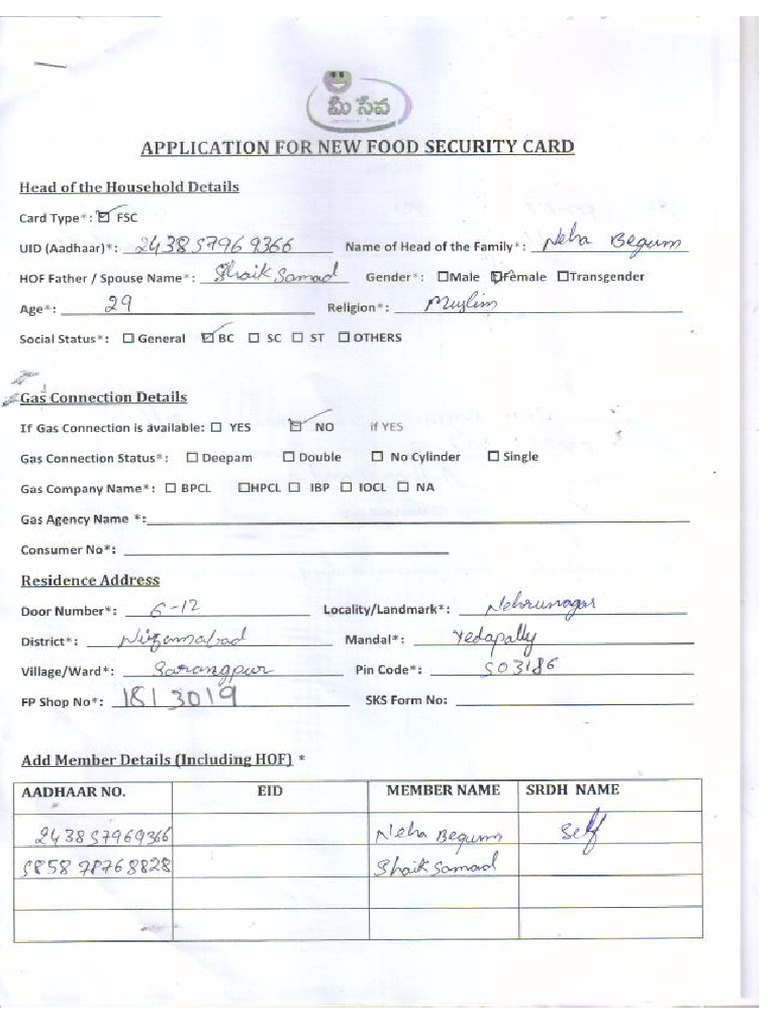 మీ సేవ
APPLICATION FOR NEW FOOD SECURITY CARD
Head of the Household Details
Card Type*: ☑ FSC
UID (Aadhaar)*: 243857969366 Name of Head of the Family*: Neha Begum
HOF Father / Spouse Name*: Shaik Samad Gender*: ☐Male ☑Female ☐Transgender
Age*: 29 Religion*: Muslim
Social Status*: ☐ General ☑ BC ☐ SC ☐ ST ☐ OTHERS
Gas Connection Details
If Gas Connection is available: ☐ YES ☑ NO if YES
Gas Connection Status*: ☐ Deepam ☐ Double ☐ No Cylinder ☐ Single
Gas Company Name*: ☐ BPCL ☐HPCL ☐ IBP ☐ IOCL ☐ NA
Gas Agency Name *:
Consumer No*:
Residence Address
Door Number*: 6-12 Locality/Landmark*: Nehrunagar
District*: Nizamabad Mandal*: Yedapally
Village/Ward*: Sarangpur Pin Code*: 503186
FP Shop No*: 1813019 SKS Form No:
Add Member Details (Including HOF) *
AADHAAR NO. EID MEMBER NAME SRDH NAME
243857969366 Neha Begum Self
585878768828 Shaik Samad